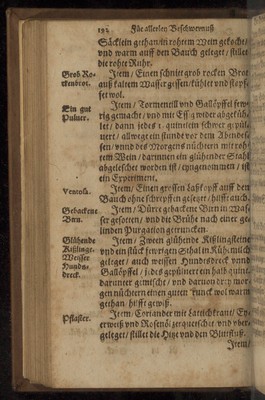 192 Für allerley Beschwernuß
Säcklein gethan/in rohtem Wein gekocht/
vnd warm auff den Bauch geleget / stillet
die rohte Ruhr.
Grob Ro-
ckenbrot.
Item / Einen schnitt grob rocken Brot
auß kaltem Wasser gessen/kühlet vnd stopf-
fet wol.
Ein gut
Pulver.
Item / Tormentill vnd Gallöpffel
gemacht / vnd mit Essig wider abgeküh-
let / dann jedes 1. quintlein schwer gepül-
uert / allwege ein stunde vor dem Abendes-
sen / vnnd des Morgens nüchtern mit roh-
tem Wein / darinnen ein glühender Stahl
abgeleschet worden ist / eyngenommen / ist
ein Experiment.
Ventosú.
Item / Einen grossen Laßkopff auff den
Bauch ohne schrepffen gesetzt / hilfft auch.
Gebackene
Birn.
Item / Dürre gebackene Birn in Was-
ser gesotten / vnd die Brühe nach einer ge-
linden Purgation getruncken.
Glühende
Kißlinge.
Weisser
Hunds-
dreck.
Item / Zween glühende Kißlingsteine
vnd ein stück fewrigen Sthal in Küh milch
geleget / auch weissen Hundsdreck vnnd
Gallöpffel / jedes gepüluert ein halb quint.
darunter gemischt / vnd daruon deß mor-
gen nüchtern einen guten Trunck wol warm
gethan hilfft gewiß.
Pflaster.
Item / Coriander mit Lattichkraut / Ey-
erweiß vnd Rosenöl zerquetschet vnd vber-
geleget / stillet die Hitze vnd den Blutfluß.
Item /